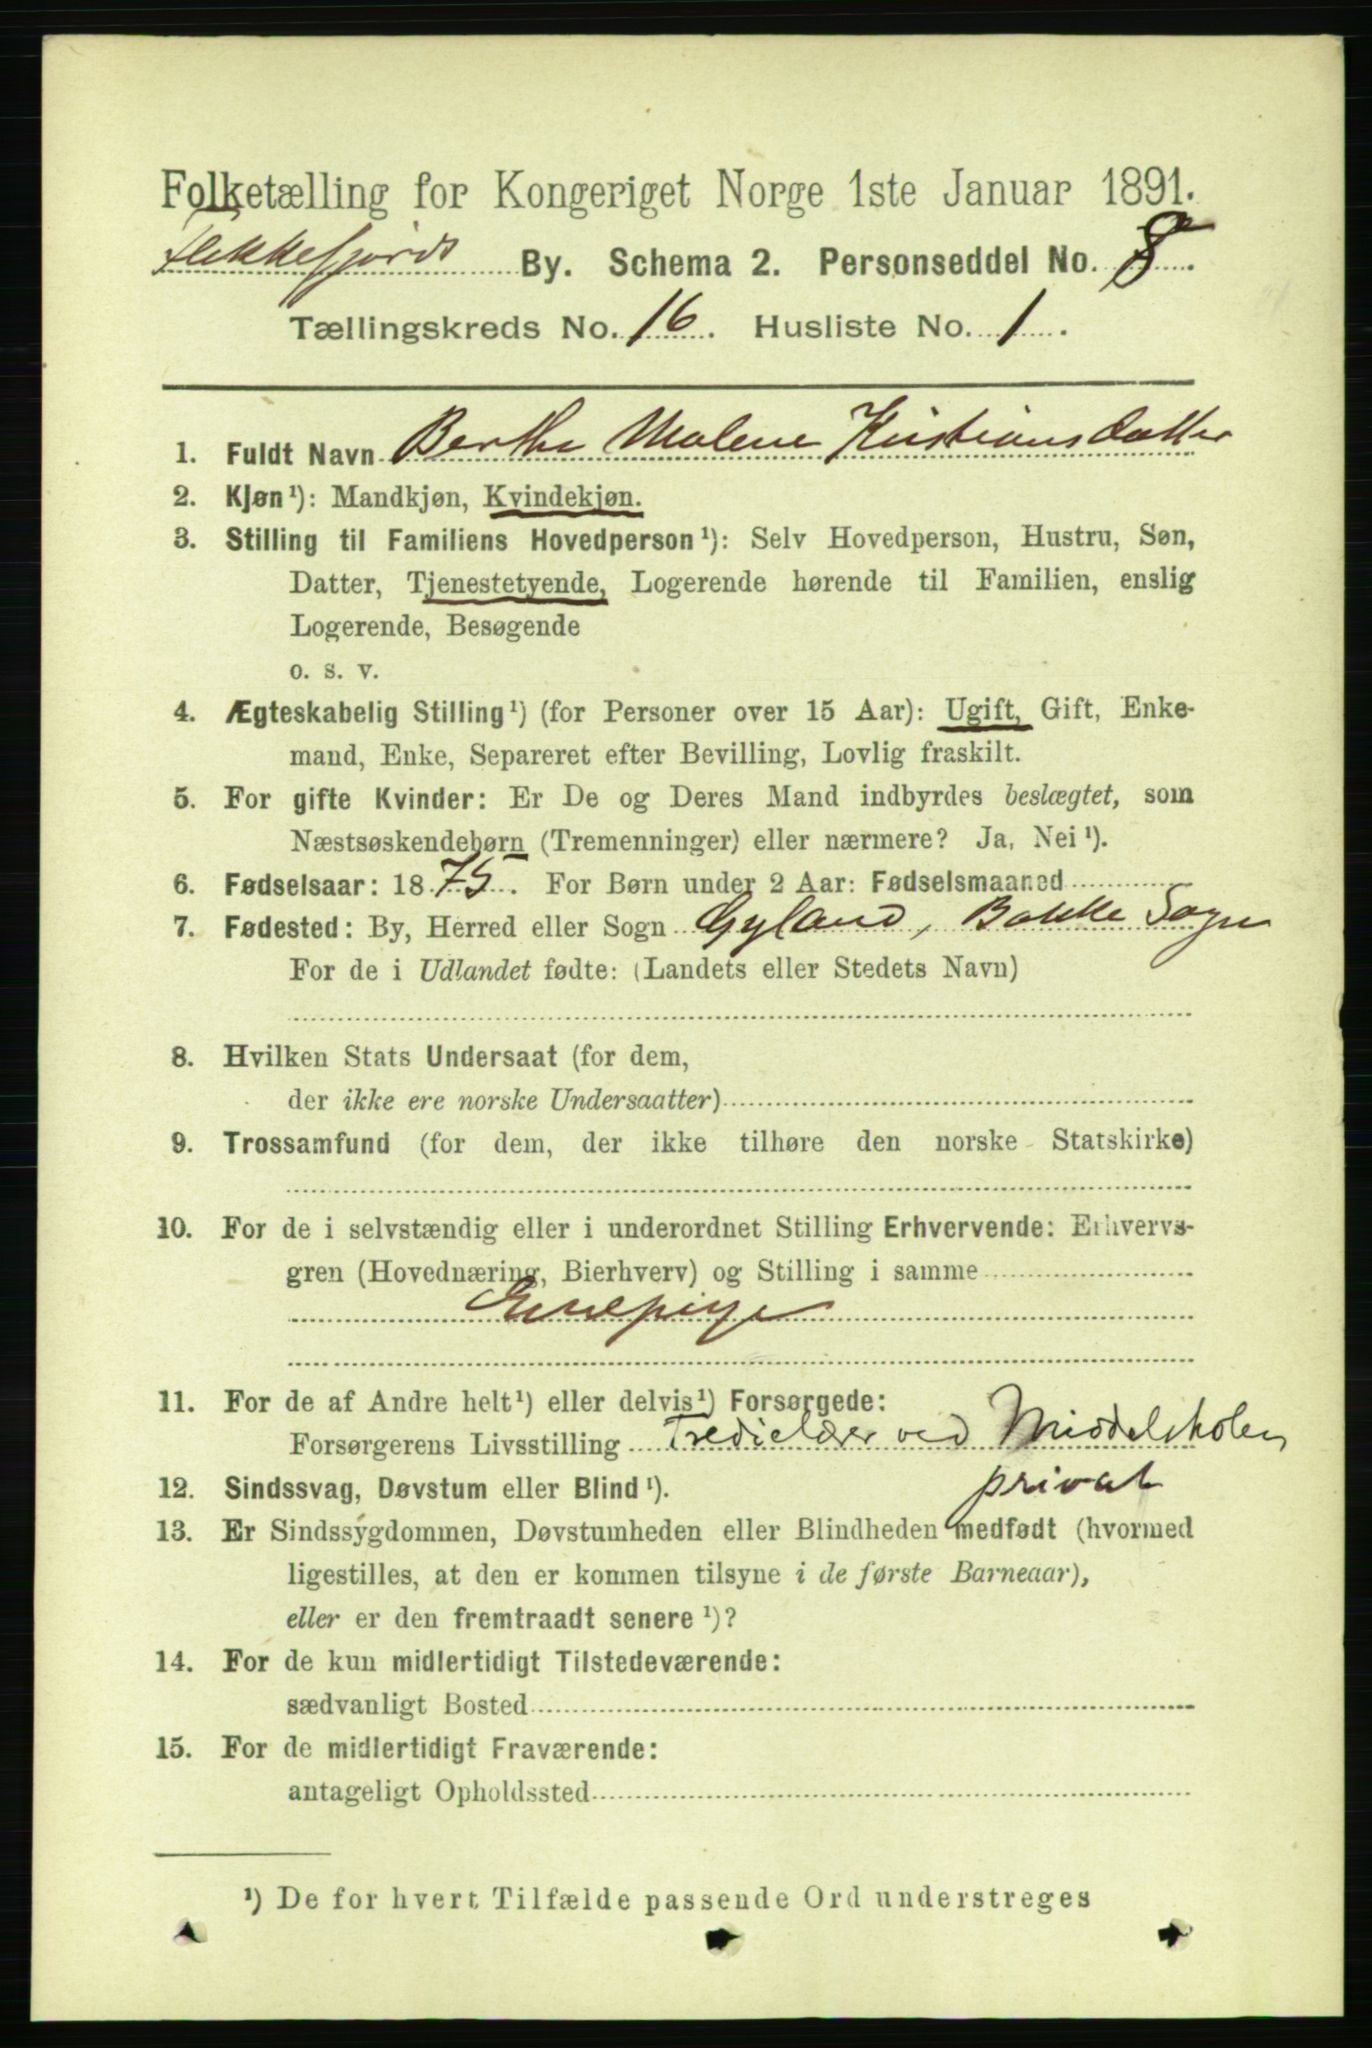 Folketælling for Kongeriget Norge 1ste Januar 1891.
Flekkefjords By. Schema 2. Personseddel No. 8.
Tællingskreds No. 16. Husliste No. 1.
1. Fuldt Navn Berthe Malene Kristiansdatter
2. Kjøn¹): Mandkjøn, Kvindekjøn.
3. Stilling til Familiens Hovedperson¹): Selv Hovedperson, Hustru, Søn,
Datter, Tjenestetyende, Logerende hørende til Familien, enslig
Logerende, Besøgende
o. s. v.
4. Ægteskabelig Stilling¹) (for Personer over 15 Aar): Ugift, Gift, Enke-
mand, Enke, Separeret efter Bevilling, Lovlig fraskilt.
5. For gifte Kvinder: Er De og Deres Mand indbyrdes beslægtet, som
Næstsøskendebørn (Tremenninger) eller nærmere? Ja, Nei¹).
6. Fødselsaar: 1875. For Børn under 2 Aar: Fødselsmaaned
7. Fødested: By, Herred eller Sogn Gyland, Bakke Sogn
For de i Udlandet fødte: (Landets eller Stedets Navn)
8. Hvilken Stats Undersaat (for dem,
der ikke ere norske Undersaatter)
9. Trossamfund (for dem, der ikke tilhøre den norske Statskirke)
10. For de i selvstændig eller i underordnet Stilling Erhvervende: Erhvervs-
gren (Hovednæring, Bierhverv) og Stilling i samme
11. For de af Andre helt¹) eller delvis¹) Forsørgede:
Forsørgerens Livsstilling Tredielærer ved Middelskolen
privat
12. Sindssvag, Døvstum eller Blind¹).
13. Er Sindssygdommen, Døvstumheden eller Blindheden medfødt (hvormed
ligestilles, at den er kommen tilsyne i de første Barneaar),
eller er den fremtraadt senere¹)?
14. For de kun midlertidigt Tilstedeværende:
sædvanligt Bosted
15. For de midlertidigt Fraværende:
antageligt Opholdssted
¹) De for hvert Tilfælde passende Ord understreges